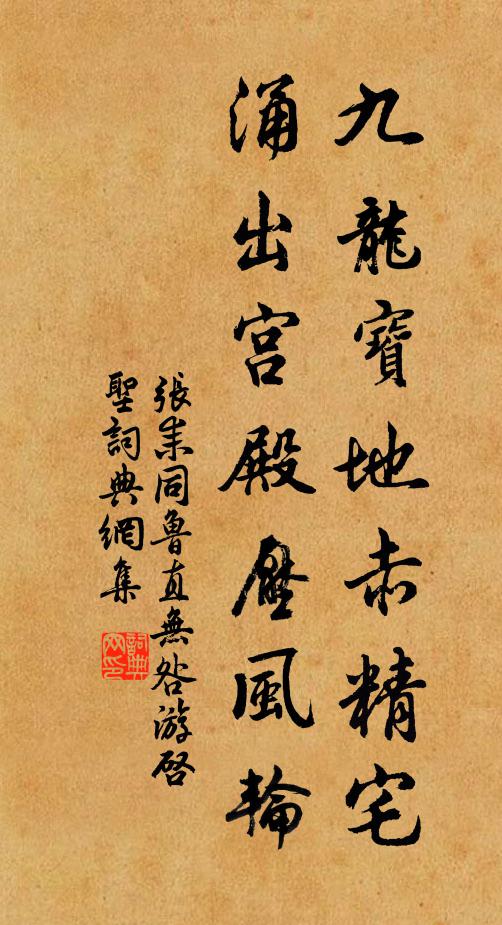 九龍寶地赤精宅
涌出宮殿壓風輪
張耒同魯直無咎游啓
聖詞典網集
詞典
网印